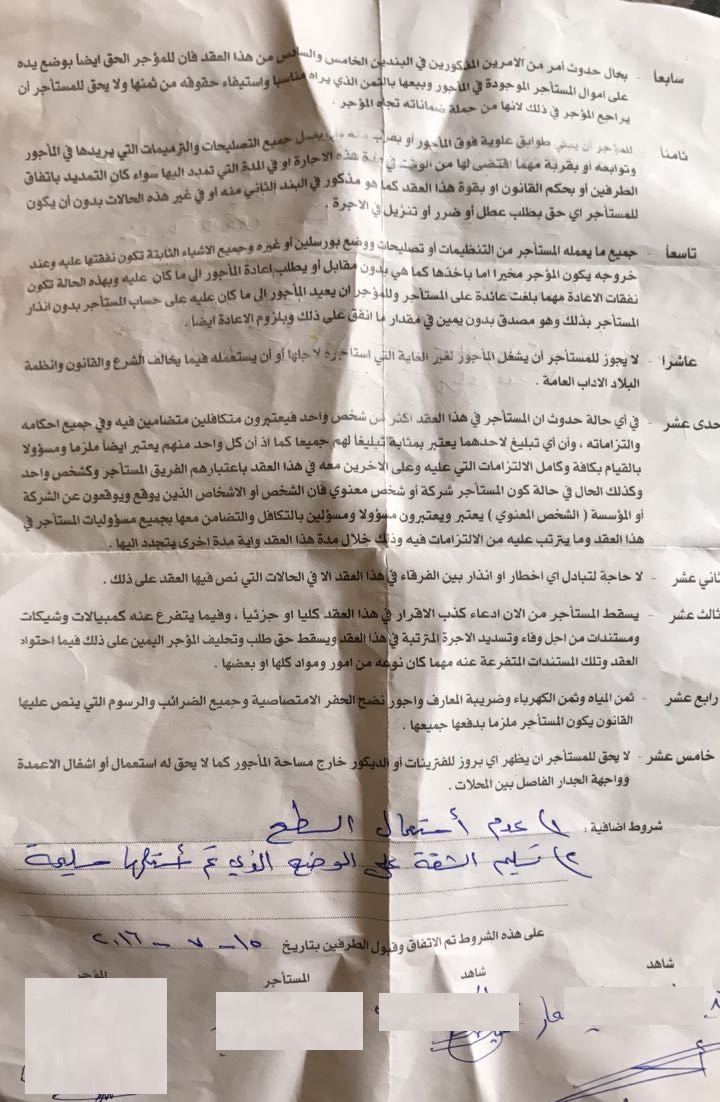 سابعاً - بحال حدوث أمر من الامرين المذكورين في البندين الخامس والسادس من هذا العقد فان للمؤجر الحق ايضاً بوضع يده
على اموال المستأجر الموجودة في المأجور وبيعها بالثمن الذي يراه مناسبا واستيفاء حقوقه من ثمنها ولا يحق للمستأجر أن
يراجع المؤجر في ذلك لانها من جملة ضماناته تجاه المؤجر .
ثامناً - للمؤجر أن يبني طوابق علوية فوق المأجور أو جميع التصليحات والترميمات التي يريدها في المأجور
وتوابعه أو بقربة مهما اقتضى لها من الوقت في هذه الاجارة او في المدة التي تمدد اليها سواء كان التمديد باتفاق
الطرفين أو بحكم القانون او بقوة هذا العقد كما هو مذكور في البند الثاني منه او في غير هذه الحالات بدون أن يكون
للمستأجر اي حق بطلب عطل أو ضرر أو تنزيل في الاجرة .
تاسعاً - جميع ما يعمله المستأجر من التنظيمات أو تصليحات ووضع بورسلين أو غيره وجميع الاشياء الثابتة تكون نفقتها عليه وعند
خروجه يكون المؤجر مخيرا اما باخذها كما هي بدون مقابل أو يطلب اعادة المأجور الى ما كان عليه وبهذه الحالة تكون
نفقات الاعادة مهما بلغت عائدة على المستأجر وللمؤجر ان يعيد المأجور الى ما كان عليه على حساب المستأجر بدون انذار
المستأجر بذلك وهو مصدق بدون يمين في مقدار ما انفق على ذلك وبلزوم الاعادة ايضاً .
عاشرا - لا يجوز للمستأجر أن يشغل المأجور لغير الغاية التي استأجره لاجلها أو أن يستعمله فيما يخالف الشرع والقانون وانظمة
البلاد الاداب العامة .
حدى عشر - في أي حالة حدوث ان المستأجر في هذا العقد اكثر من شخص واحد فيعتبرون متكافلين متضامين فيه وفي جميع احكامه
والتزاماته ، وأن أي تبليغ لاحدهما يعتبر بمثابة تبليغاً لهم جميعا كما اذ أن كل واحد منهم يعتبر ايضاً ملزما ومسؤولا
بالقيام بكافة وكامل الالتزامات التي عليه وعلى الاخرين معه في هذا العقد باعتبارهم الفريق المستأجر وكشخص واحد
وكذلك الحال في حالة كون المستأجر شركة أو شخص معنوي فان الشخص أو الاشخاص الذين يوقع ويوقعون عن الشركة
او المؤسسة ( الشخص المعنوي ) يعتبر ويعتبرون مسؤولا ومسؤلين بالتكافل والتضامن معها بجميع مسؤوليات المستأجر في
هذا العقد وما يترتب عليه من الالتزامات فيه وذلك خلال مدة هذا العقد واية مدة اخرى يتجدد اليها .
ثاني عشر - لا حاجة لتبادل اي اخطار او انذار بين الفرقاء في هذا العقد الا في الحالات التي نص فيها العقد على ذلك .
ثالث عشر - يسقط المستأجر من الان ادعاء كذب الاقرار في هذا العقد كليا او جزئياً ، وفيما يتفرع عنه كمبيالات وشيكات
ومستندات من اجل وفاء وتسديد الاجرة المترتبة في هذا العقد ويسقط حق طلب وتحليف المؤجر اليمين على ذلك فيما احتواه
العقد وتلك المستندات المتفرعة عنه مهما كان نوعه من امور ومواد كلها او بعضها .
رابع عشر - ثمن المياه وثمن الكهرباء وضريبة المعارف واجور نضح الحفر الامتصاصية وجميع الضرائب والرسوم التي ينص عليها
القانون يكون المستأجر ملزما بدفعها جميعها .
خامس عشر - لا يحق للمستأجر ان يظهر اي بروز للفترينات أو الديكور خارج مساحة المأجور كما لا يحق له استعمال أو اشغال الاعمدة
وواجهة الجدار الفاصل بين المحلات .
شروط اضافية : ١) عدم أستعمال السطح
٢) تسليم الشقة على الوضع الذي تم أستلامها سليمة
على هذه الشروط تم الاتفاق وقبول الطرفين بتاريخ ١٥ - ٧ - ٢٠١٦
شاهد شاهد المستأجر المؤجر